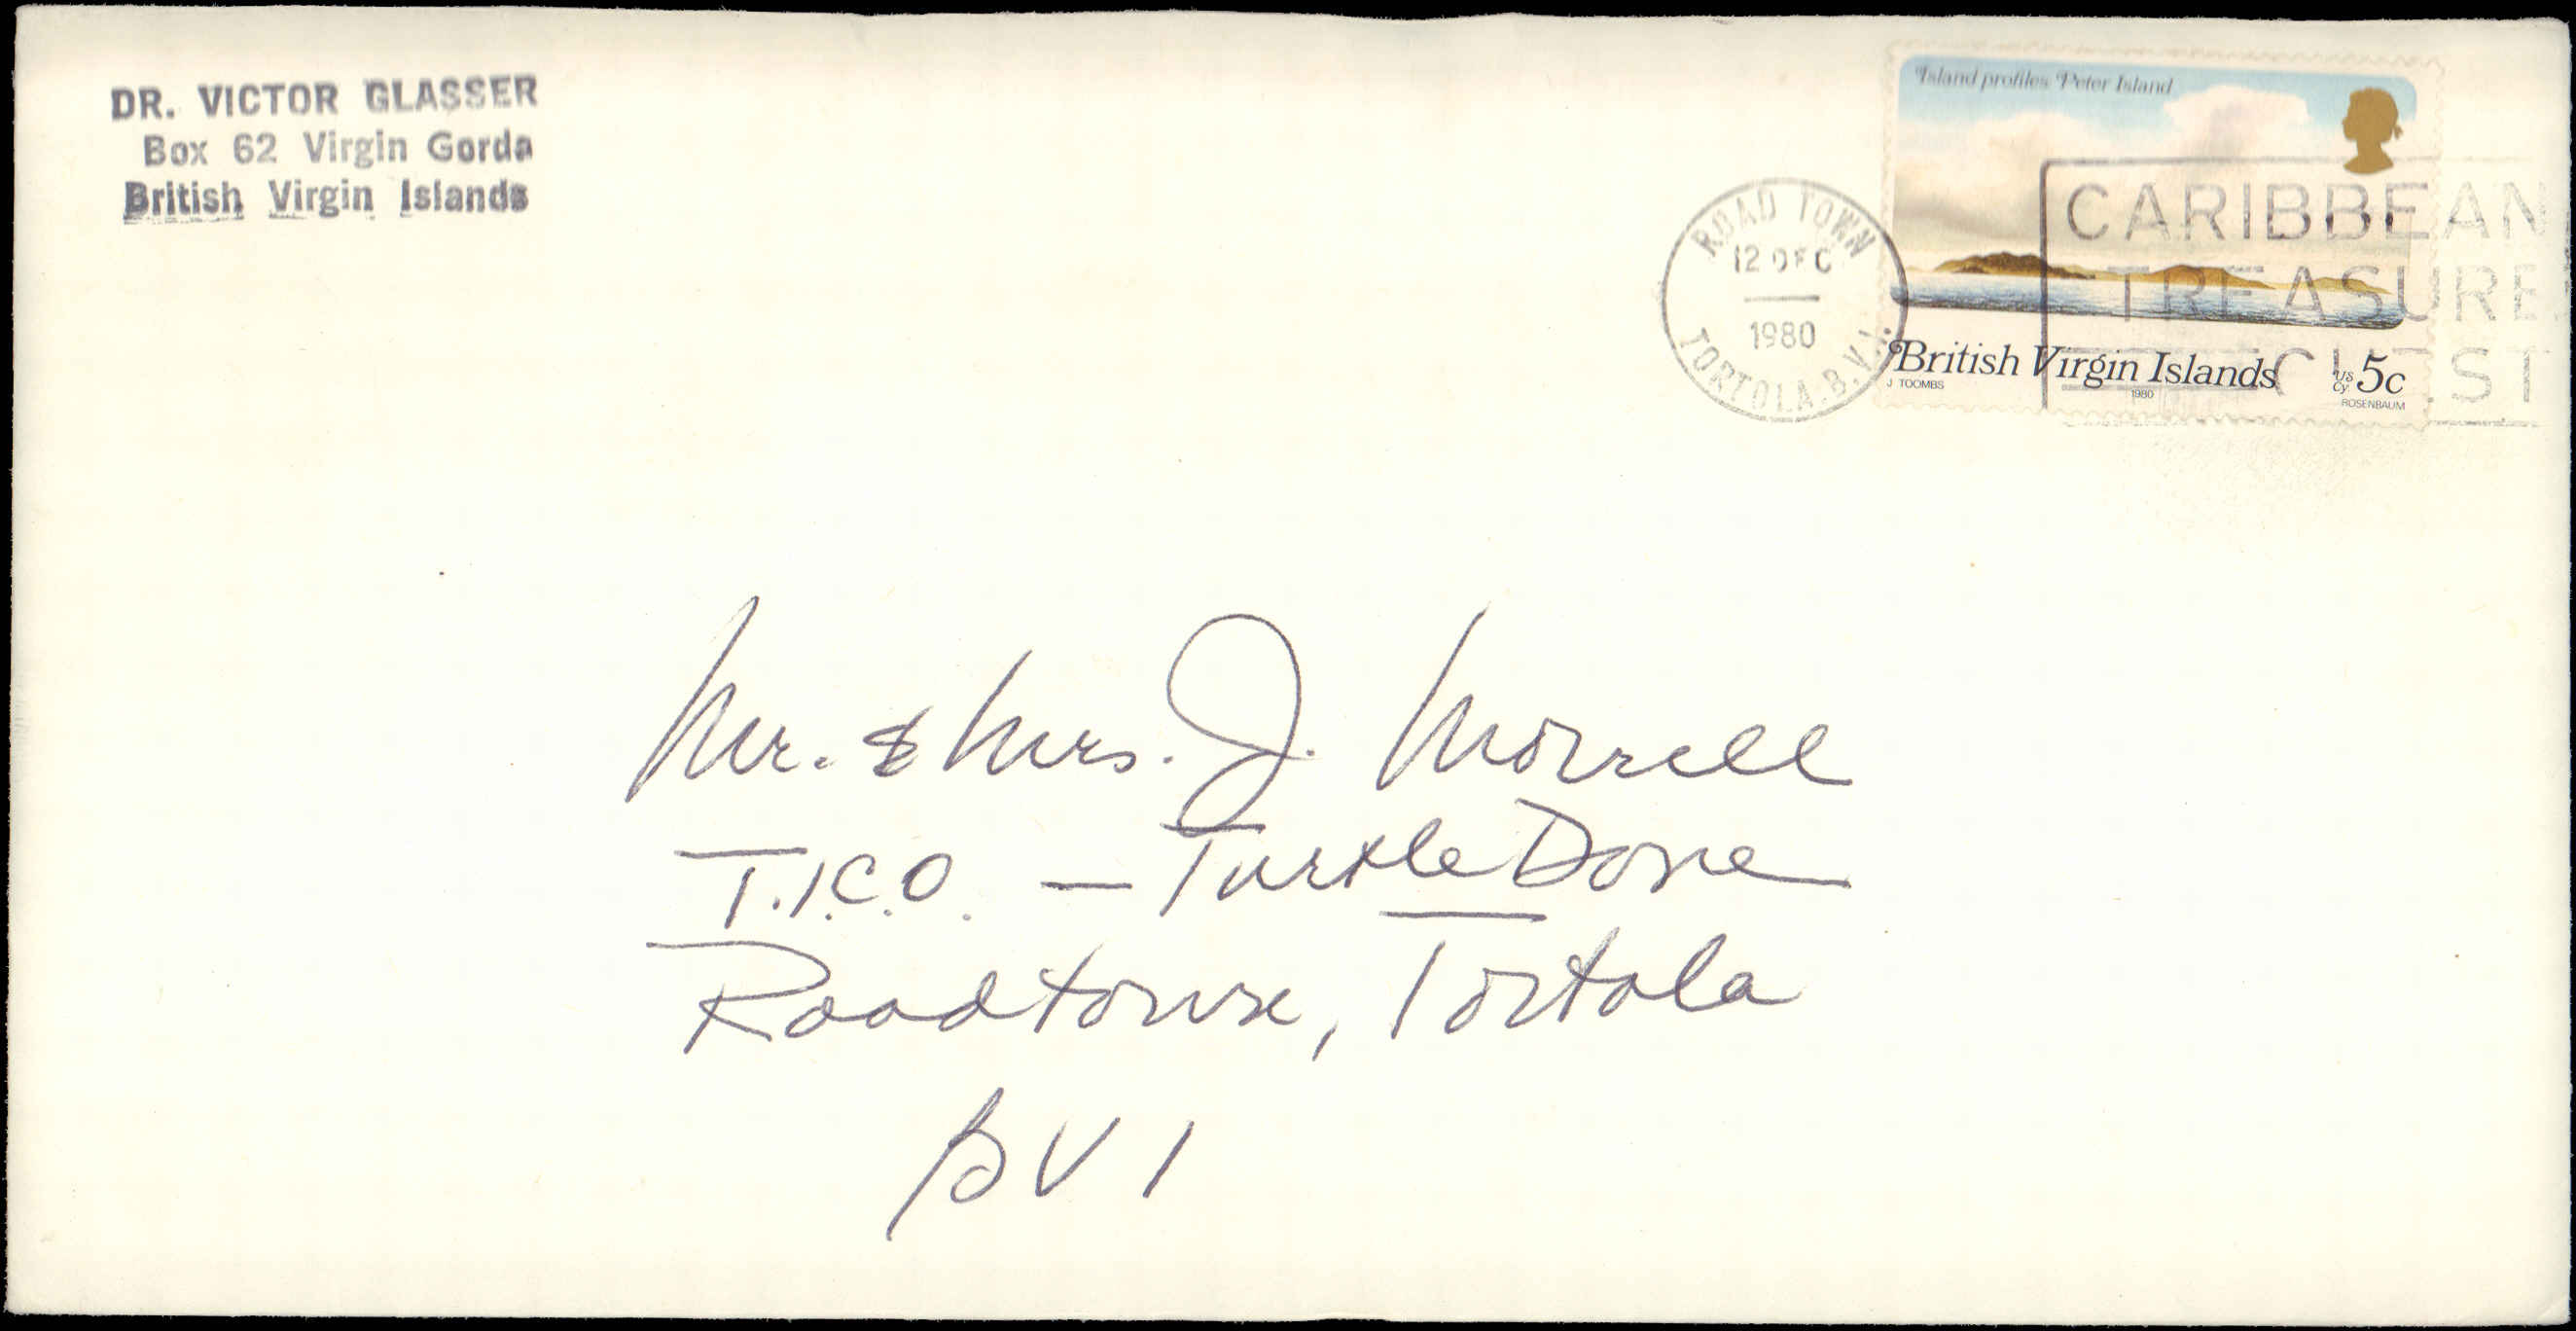 DR. VICTOR GLASSER
Box 62 Virgin Gorda
British Virgin Islands
Island profiles Peter Island
ROAD TOWN
12 DEC
1980
TORTOLA. B.V.I.
CARIBBEAN
TREASURE
CHEST
British Virgin Islands US Cy 5c
J TOOMBS 1980 ROSENBAUM
Mr. & Mrs. J. Morrell
T.I.C.O. — Turtle Dove
Roadtown, Tortola
BVI